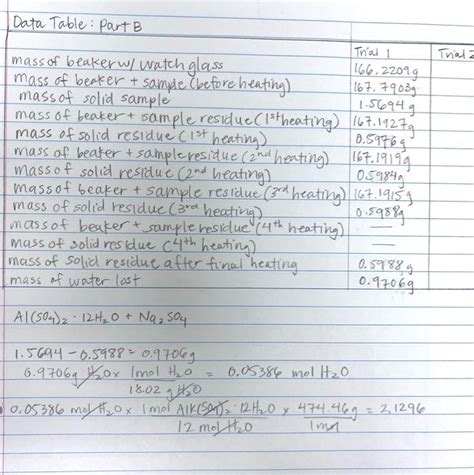 Data Table: Part B
Trial 1 Trial 2
mass of beaker w/ watch glass 166.2209g
mass of beaker + sample (before heating) 167.7903g
mass of solid sample 1.5694g
mass of beaker + sample residue (1st heating) 167.1927g
mass of solid residue (1st heating) 0.5976g
mass of beaker + sample residue (2nd heating) 167.1919g
mass of solid residue (2nd heating) 0.5984g
mass of beaker + sample residue (3rd heating) 167.1915g
mass of solid residue (3rd heating) 0.5988g
mass of beaker + sample residue (4th heating) —
mass of solid residue (4th heating) —
mass of solid residue after final heating 0.5988g
mass of water lost 0.9706g
Al(SO4)2 · 12H2O + Na2SO4
1.5694 - 0.5988 = 0.9706g
0.9706g H2O x 1mol H2O = 0.05386 mol H2O
18.02 g H2O
0.05386 mol H2O x 1mol AlK(SO4)2 · 12H2O x 474.46g = 2.1296
12 mol H2O 1mol